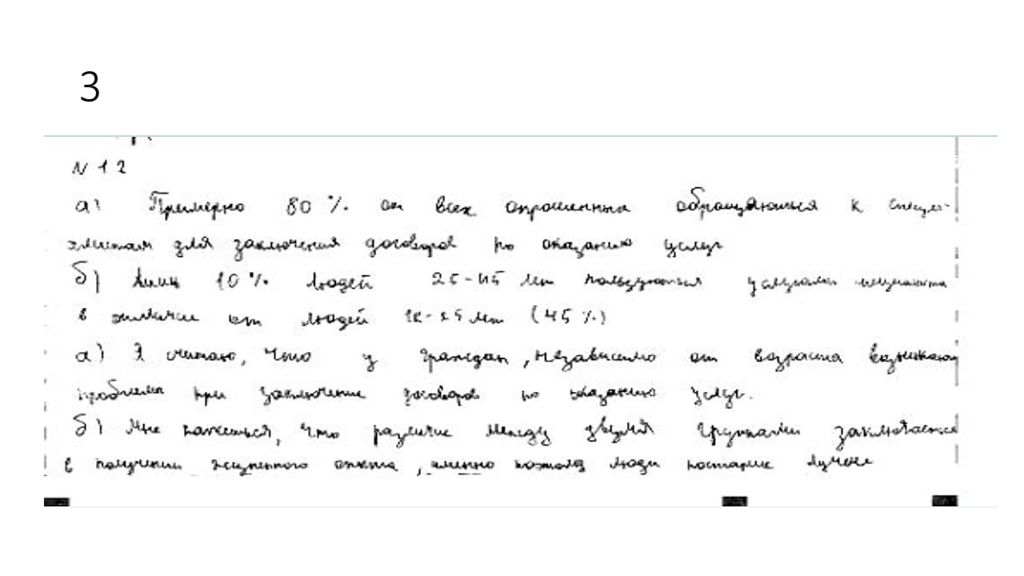 3
N 12
а) Примерно 80 % от всех опрошенных обращаються к специ-
алистам для заключения договоров по оказанию услуг
б) Лишь 10 % людей 25-45 лет пользуются услугами
в отличие от людей 18-25 лет (45 %)
а) Я считаю, что у граждан, независимо от возраста возникают
проблемы при заключение договоров по оказанию услуг.
б) Мне кажеться, что различие между двумя группами заключается
в получении жизненного опыта, именно поэтому люди постарше лучше